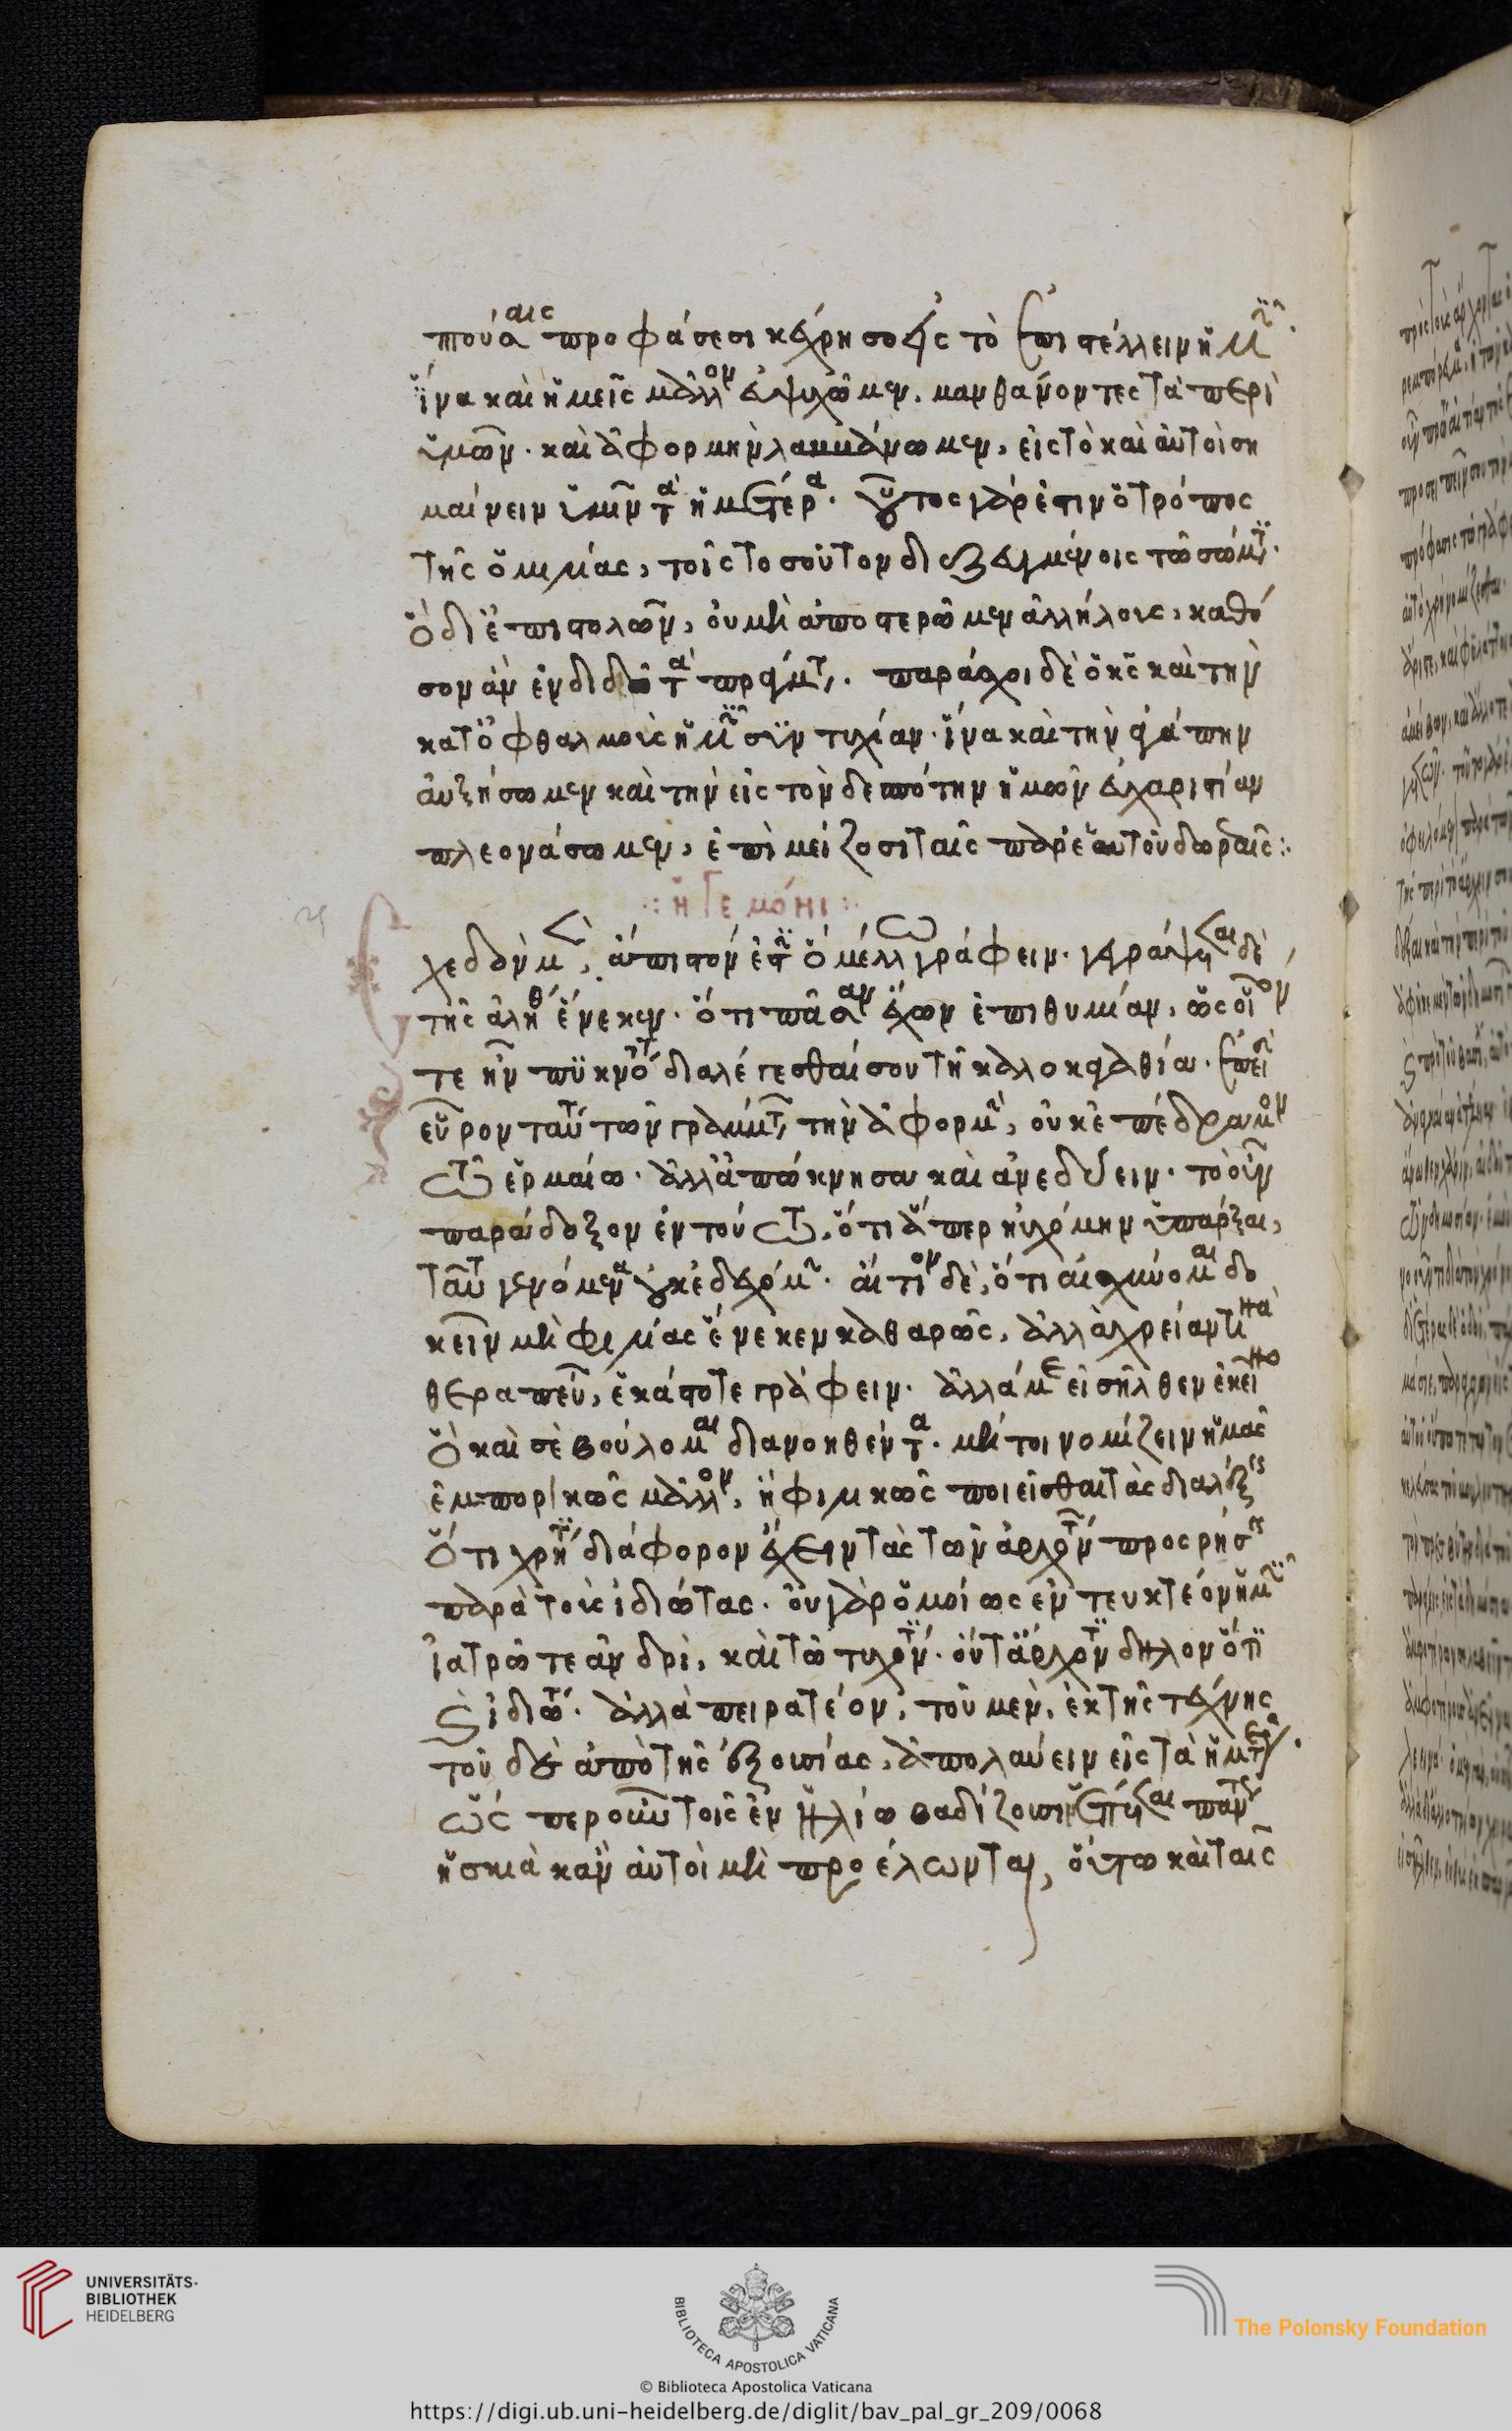 πούσαις προφάσεσι κέχρησο εἰς τὸ ἐπιστέλλειν ἡμῖν.
ἵνα καὶ ἡμεῖς μᾶλλον εὐψυχῶμεν, μανθάνοντες τὰ περὶ
ὑμῶν. καὶ ἀφορμὴν λαμβάνωμεν, εἰς τὸ καὶ αὐτοὶ ση
μαίνειν ὑμῖν τὰ ἡμέτερα. οὗτος γάρ ἐστιν ὁ τρόπος
τῆς ὁμιλίας, τοῖς τοσοῦτον διεζευγμένοις τῷ σώματι.
ὁ δι' ἐπιστολῶν, οὗ μὴ ἀποστερῶμεν ἀλλήλους, καθό
σον ἂν ἐνδιδῶ τὰ πράγματα. παράσχοι δὲ ὁ κς καὶ τὴν
κατ' ὀφθαλμοὺς ἡμῖν συντυχίαν. ἵνα καὶ τὴν ἀγάπην
αὐξήσωμεν καὶ τὴν εἰς τὸν δεσπότην ἡμῶν εὐχαριστίαν
πλεονάσωμεν, ἐπὶ μείζοσι ταῖς παρ' ἑαυτοῦ δωρεαῖς:
: ἡγεμόνι :
χεδὸν μὲν, ἄπιστόν ἐστιν ὃ μέλλω γράφειν. γεγράψεται δὲ
τῆς ἀληθείας ἕνεκεν. ὅτι πᾶσαν ἔχων ἐπιθυμίαν, ὡς οἷόν
τε ἦν πυκνότατα διαλέγεσθαί σου τῇ καλοκαγαθίᾳ. ἐπειδὴ
εὗρον ταύτην τῶν γραμμάτων τὴν ἀφορμὴν, οὐκ ἐπέδραμον
τῷ ἑρμαίῳ. ἀλλ' ἀπώκνησα καὶ ἀνεδύειν. τὸ οὖν
παράδοξον ἐν τούτῳ, ὅτι ἅπερ ηὐχόμην ὑπάρξαι,
ταῦτα γενόμενα οὐκ ἐδεχόμην. αἴτιον δὲ, ὅτι αἰσχύνομαι δο
κεῖν μὴ φιλίας ἕνεκεν καθαρῶς, ἀλλὰ χρείαν τινὰ
θεραπεύων, ἑκάστοτε γράφειν. ἀλλά με εἰσῆλθεν ἐκεῖνο
ὃ καὶ σὲ βούλομαι διανοηθέντα. μήτοι νομίζειν ἡμᾶς
ἐμπορικῶς μᾶλλον, ἢ φιλικῶς ποιεῖσθαι τὰς διαλέξεις
ὅτι χρή τι διάφορον ἔχειν τὰς τῶν ἀρχόντων προσρήσεις
παρὰ τοὺς ἰδιώτας. οὐ γὰρ ὁμοίως ἐντευκτέον ἡμῖν
ἰατρῷ τε ἀνδρὶ, καὶ τῷ τυχόντι. οὔτε ἄρχοντι δηλονότι
καὶ ἰδιώτῃ. ἀλλὰ πειρατέον, τοῦ μὲν, ἐκ τῆς τέχνης
τοῦ δὲ ἀπὸ τῆς ἐξουσίας, ἀπολαύειν εἰς τὰ ἡμέτερα.
ὥσπερ οὖν τοῖς ἐν ἡλίῳ βαδίζουσιν ἕπεται πάντως
ἡ σκιὰ κἂν αὐτοὶ μὴ προέλωνται, οὕτω καὶ ταῖς
UNIVERSITÄTS-
BIBLIOTHEK
HEIDELBERG
BIBLIOTECA APOSTOLICA VATICANA
The Polonsky Foundation
© Biblioteca Apostolica Vaticana
https://digi.ub.uni-heidelberg.de/diglit/bav_pal_gr_209/0068